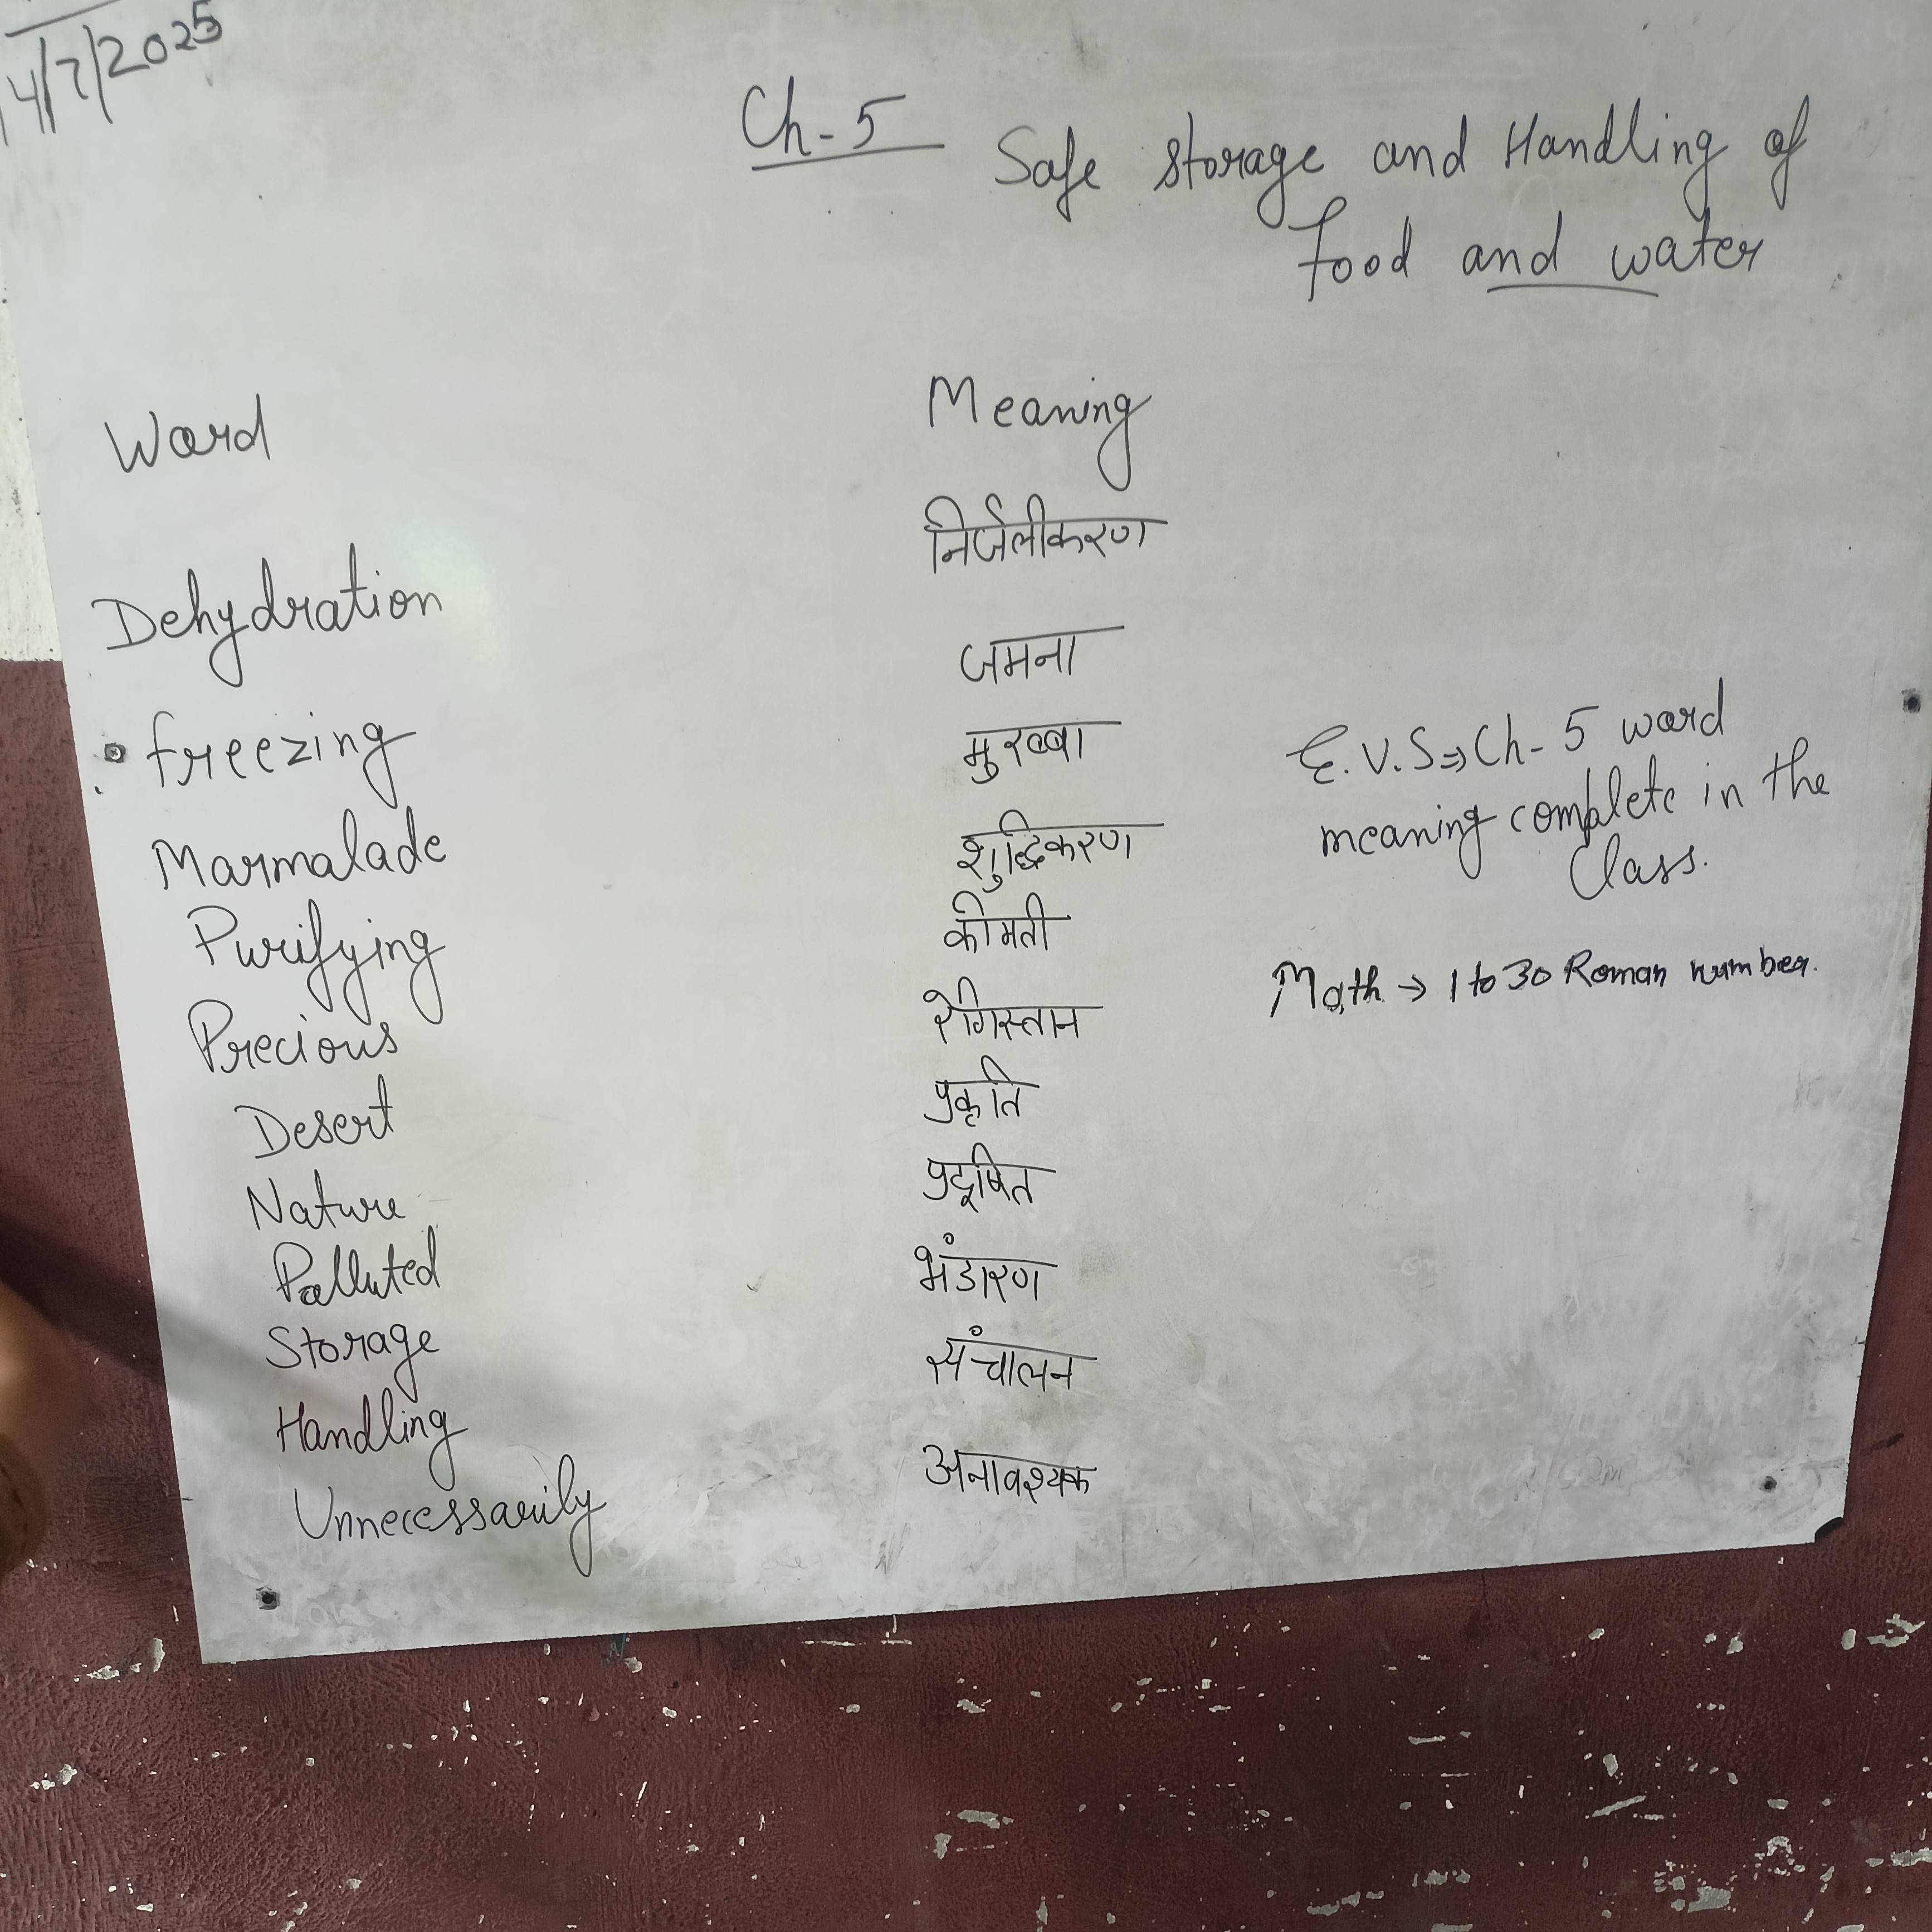 14/7/2025
Ch-5 Safe storage and Handling of
food and water
Word Meaning
Dehydration निर्जलीकरण
freezing जमना
Marmalade मुरब्बा
Purifying शुद्धिकरण
Precious कीमती
Desert रेगिस्तान
Nature प्रकृति
Polluted प्रदूषित
Storage भंडारण
Handling संचालन
Unnecessarily अनावश्यक
E.V.S⇒Ch-5 word
meaning complete in the
Class.
Math → 1 to 30 Roman number.